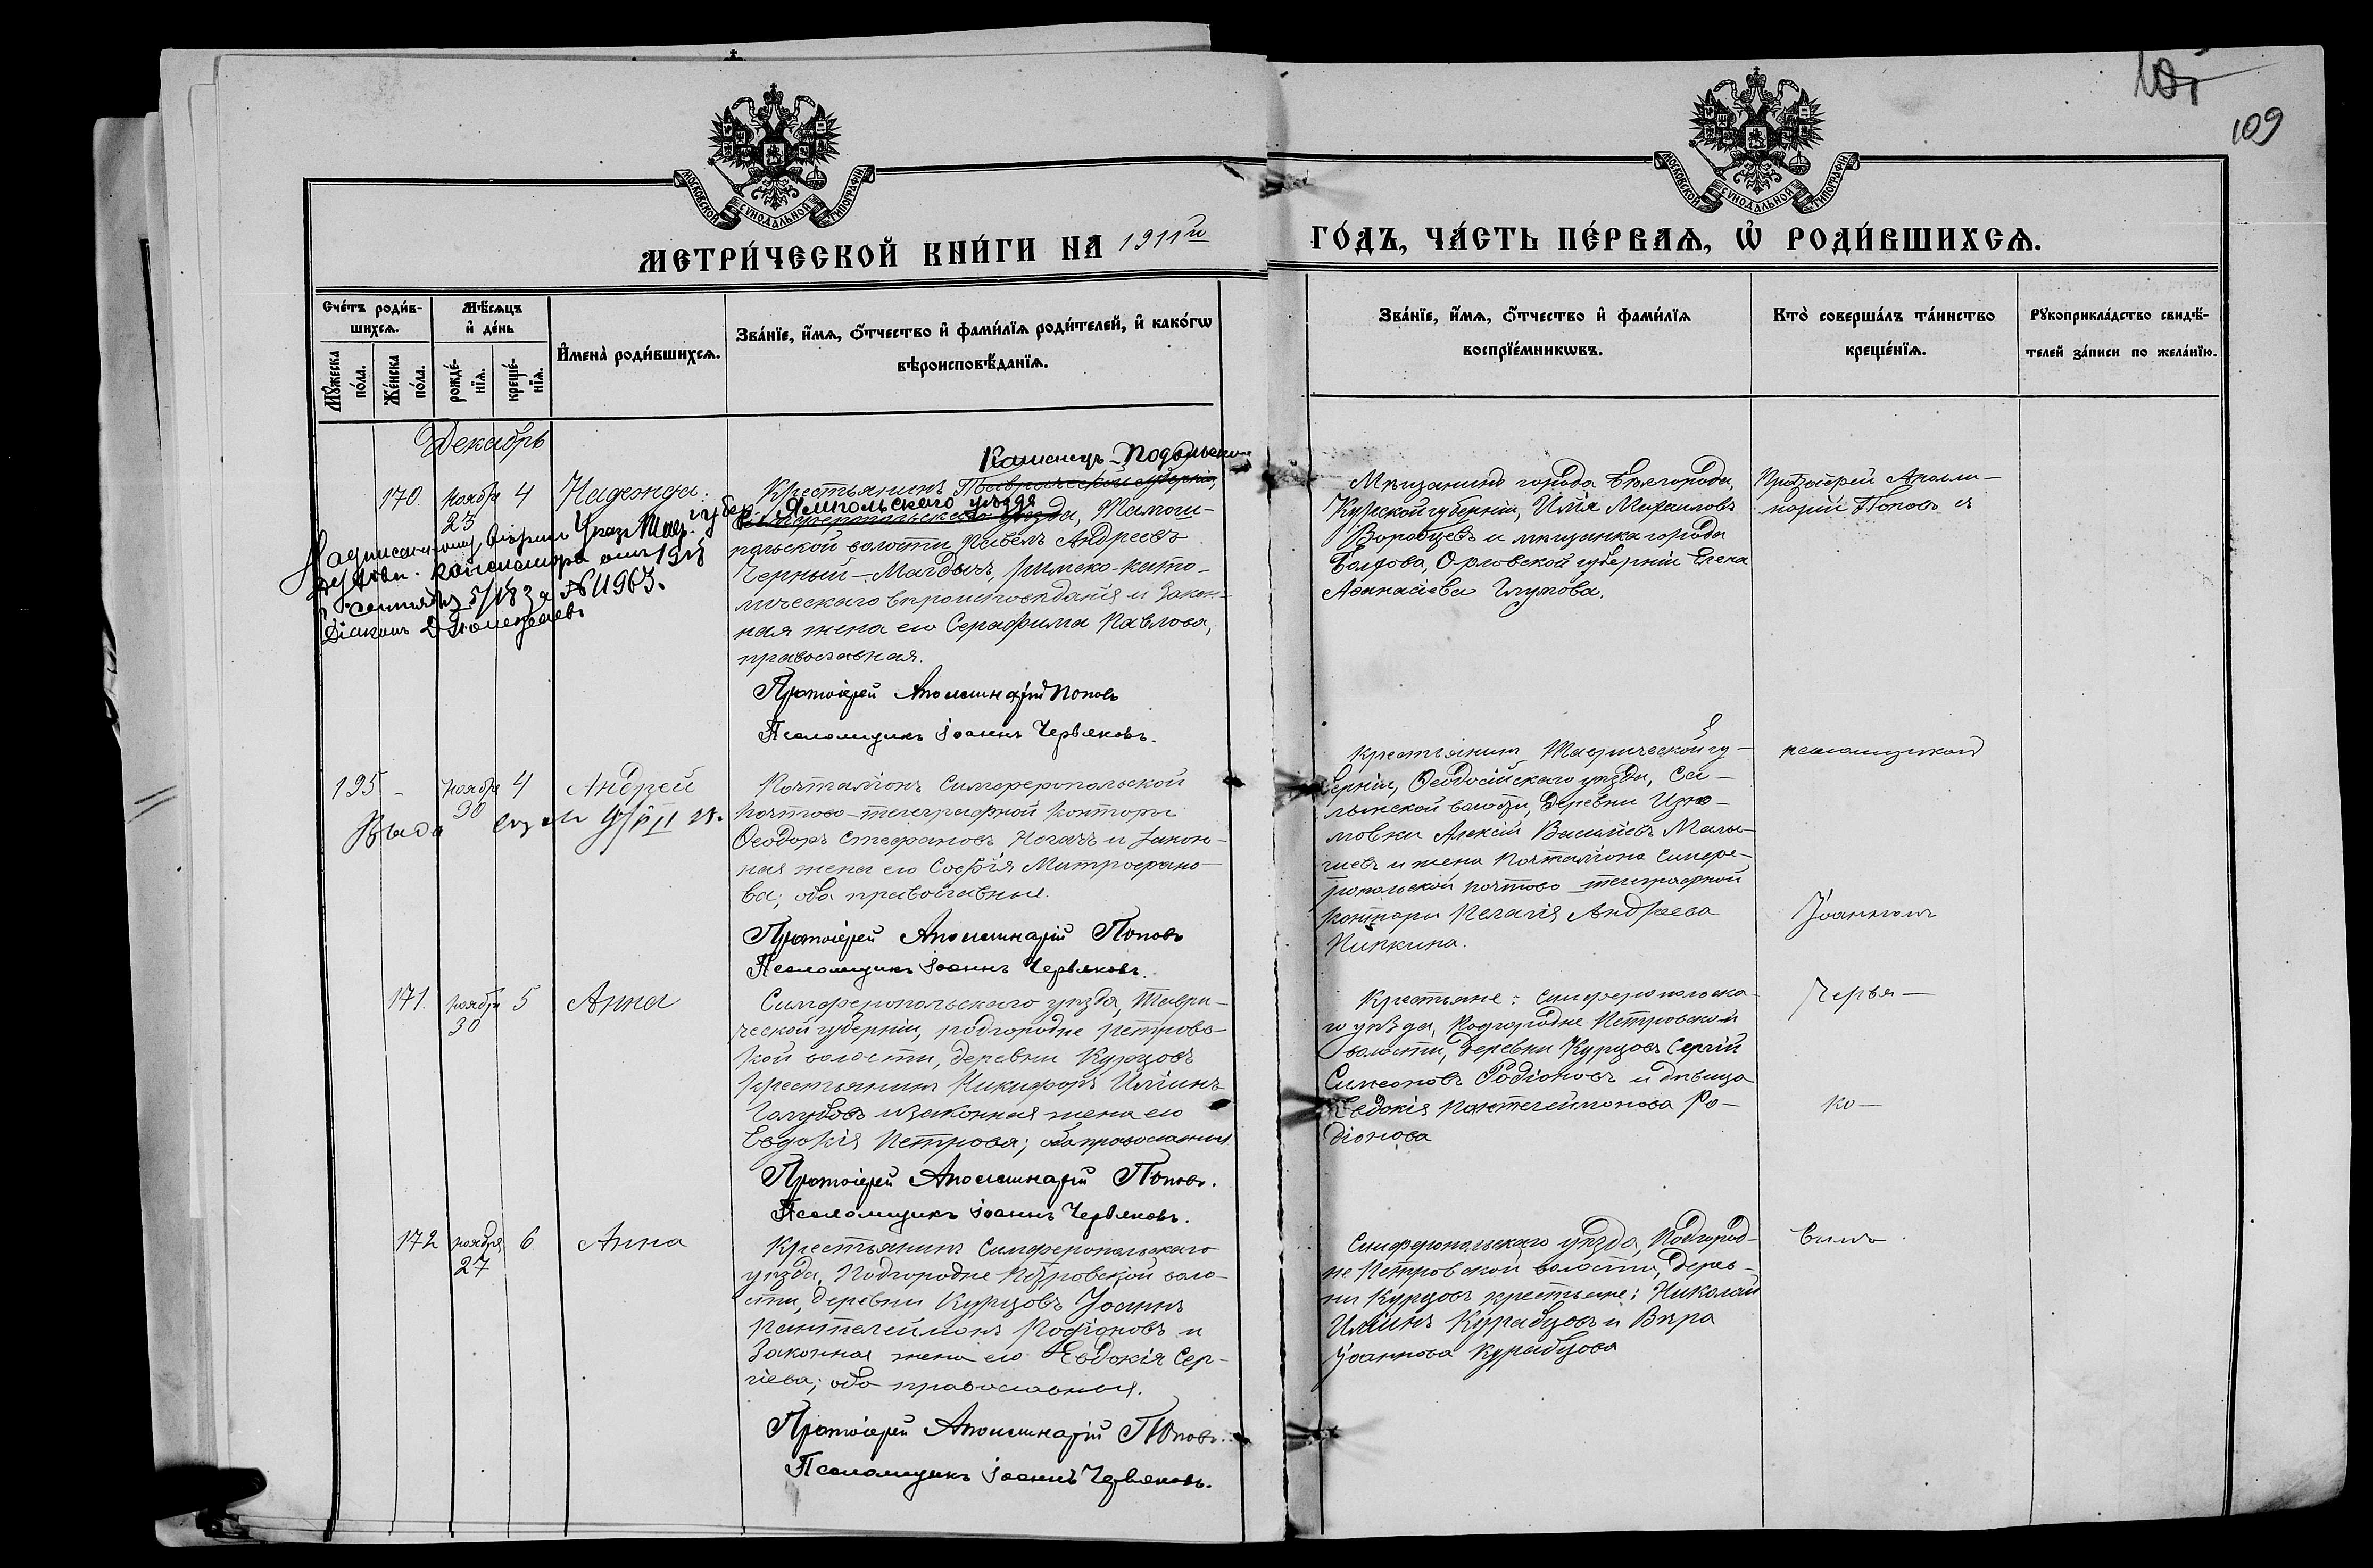 109
МОСКОВСКОЙ СѴНОДАЛЬНОЙ ТИПОГРАФІИ
МОСКОВСКОЙ СѴНОДАЛЬНОЙ ТИПОГРАФІИ
МЕТРИ́ЧЕСКОЙ КНИ́ГИ НА 1911й
ГО́ДЪ, ЧА́СТЬ ПЕ́РВАѦ, Ѡ҆ РОДИ́ВШИХСѦ.
Сче́тъ роди́в-
шихсѧ.
Мꙋ́жеска
по́ла.
Же́нска
по́ла.
Мѣ́сѧцъ
и҆ де́нь
рожде́-
нїѧ.
креще́-
нїѧ.
И҆мена̀ роди́вшихсѧ.
Зва́нїе, и҆́мѧ, ѻ҆́тчество и҆ фами́лїѧ роди́телей, и҆ како́гѡ
вѣроисповѣ́данїѧ.
Зва́нїе, и҆́мѧ, ѻ҆́тчество и҆ фами́лїѧ
воспрїе́мникѡвъ.
Кто̀ соверша́лъ та́инство
креще́нїѧ.
Рꙋкоприкла́дство свидѣ́-
телей за́писи по жела́нїю.
Декабрь
170. ноября 23 4 Надежда.
Каменецъ-Подольской
Крестьянинъ Таврической губерніи,
губер. Ямпольского уѣзда
Симферопольскаго уѣзда,
польской волости Павелъ Андреевъ
Черный-, римско-като-
лическаго вѣроисповѣданія и закон-
ная жена его Серафима Павлова,
православная.
Протоіерей Аполлинарій Поповъ
Псаломщикъ Іоаннъ Червяковъ.
Указ Тавр.
Духовн. Консистори отъ 1918
сентября 5/18 за № 11963.
Діаконъ
Мѣщанинъ города Бѣлгорода,
Курской губерніи, Илія Михаиловъ
Воробцевъ и мѣщанка города
Болхова, Орловской губерніи Елена
Аѳанасіева Глухова.
Протоіерей Аполли-
нарій Поповъ съ
195 - ноября 30 4 Андрей
Почталіонъ Симферопольской
почтово-телеграфной конторы
Ѳеодоръ Стефановъ Ногачъ и закон-
ная жена его Софія Митрофано-
ва; оба православные.
Протоіерей Аполлинарій Поповъ
Псаломщикъ Іоаннъ Червяковъ.
Крестьянинъ Таврической гу-
берніи, Ѳеодосійскаго уѣзда, Са-
лынской волости, деревни Изю-
мовки Алексій Василіевъ Малы-
гиевъ и жена почталіона Симфе-
ропольской почтово-телеграфной
конторы Пелагія Андреева
Пипкина.
псаломщикомъ
Іоанномъ
171. ноября 30 5 Анна
Симферопольскаго уѣзда, Таври-
ческой губерніи, подгородне Петровс-
кой волости, деревни Курцовъ
крестьянинъ Никифоръ Иліинъ
Голубовъ и законная жена его
Евдокія Петрова; оба православные.
Протоіерей Аполлинарій Поповъ.
Псаломщикъ Іоаннъ Червяковъ.
Крестьяне: Симферопольска-
го уѣзда, Подгородне Петровской
волости, деревни Курцовъ Сергій
Симеоновъ Родіоновъ и дѣвица
Евдокія Пантелеимонова Ро-
діонова
Червя-
ко-
172 ноября 27 6 Анна
Крестьянинъ Симферопольскаго
уѣзда, Подгородне Петровской воло-
сти, деревни Курцовъ Іоаннъ
Пантелеимонъ Родіоновъ и
законная жена его Евдокія Сер-
гіева; оба православные.
Протоіерей Аполлинарій Поповъ.
Псаломщикъ Іоаннъ Червяковъ.
Симферопольскаго уѣзда, Подгород-
не Петровской волости, дерев-
ни Курцовъ крестьяне: Николай
Иліинъ Курабцовъ и Вѣра
Іоаннова Курабцова
вымъ